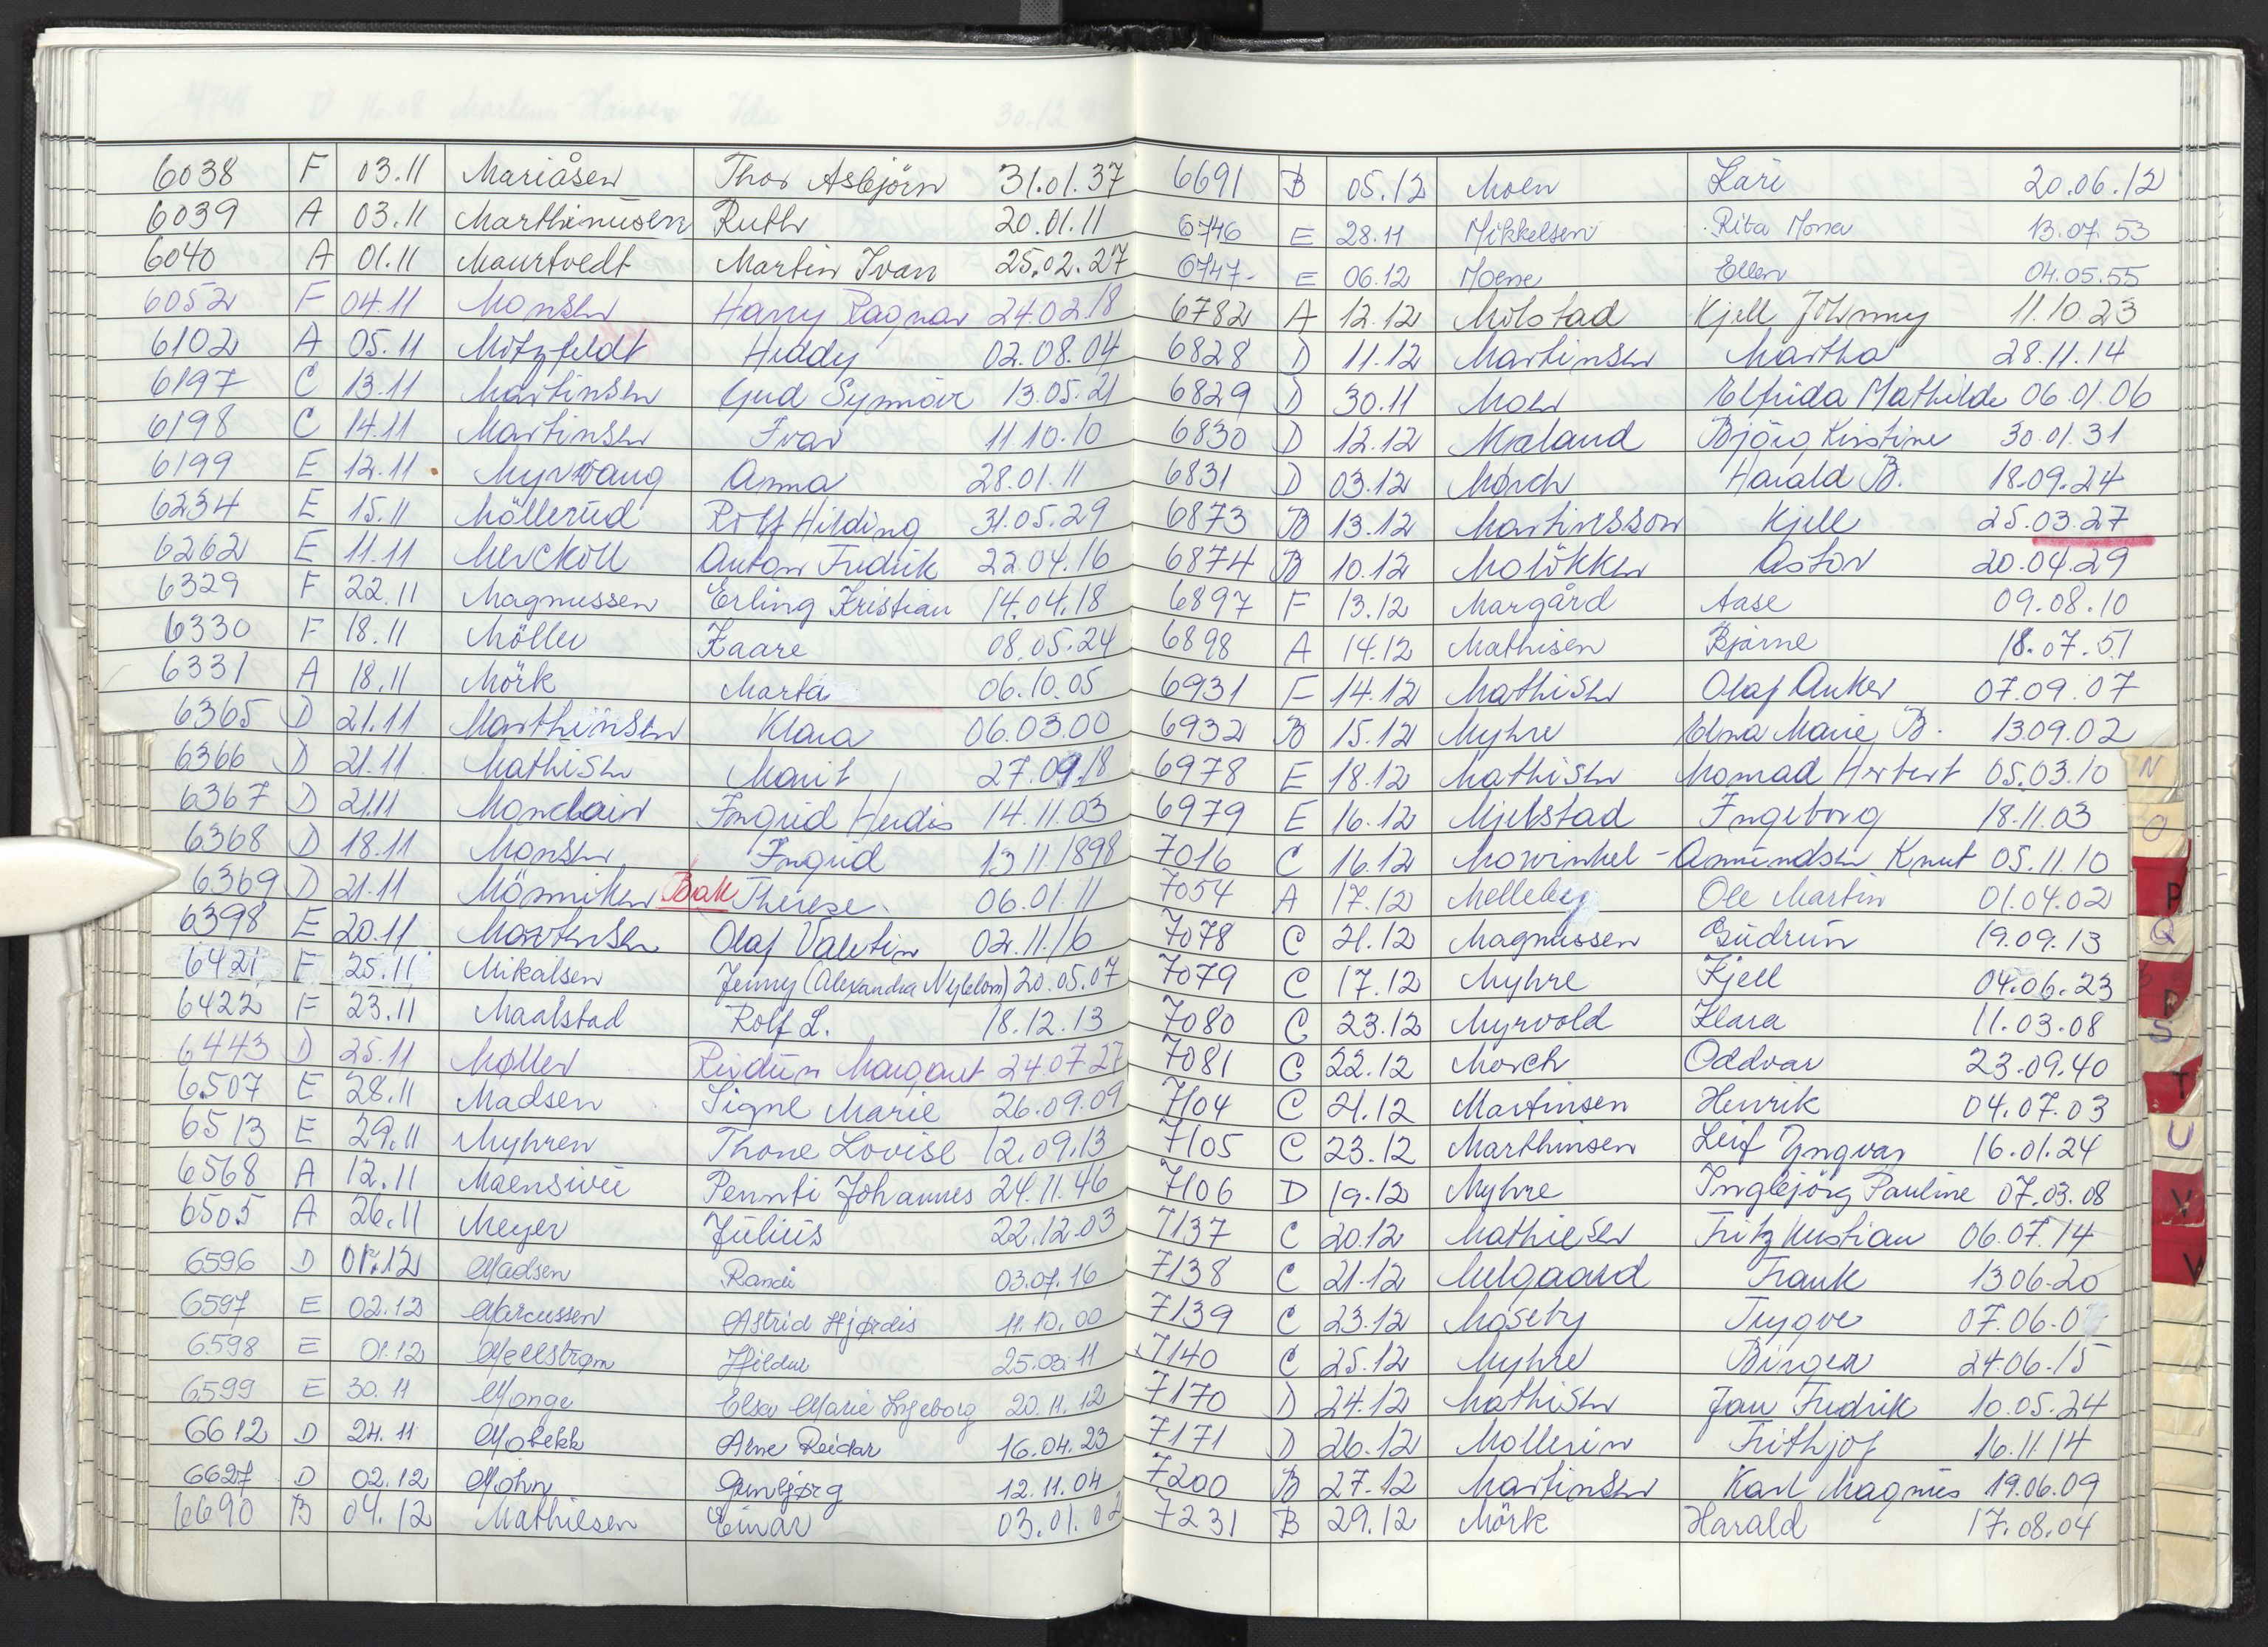 6038 F 03.11 Mariåsen Thor Asbjörn 31.01.37
6039 A 03.11 Marthinusen Ruth 20.01.11
6040 A 01.11 Maurtvedt Martin Ivan 25.02.27
6052 F 04.11 Monsen Harry Ragnar 24.02.18
6102 A 05.11 Mötzfeldt Heddy 02.08.04
6197 C 13.11 Martinsen Gud Synnöve 13.05.21
6198 C 14.11 Martinsen Ivar 11.10.10
6199 E 12.11 Myrvang Anna 28.01.11
6234 E 15.11 Möllerud Rolf Hilding 31.05.29
6262 E 11.11 Merckoll Anton Fredrik 22.04.16
6329 F 22.11 Magnussen Erling Kristian 14.04.18
6330 F 18.11 Möller Kaare 08.05.24
6331 A 18.11 Mörk Marta 06.10.05
6365 D 21.11 Marthinsen Klara 06.03.00
6366 D 21.11 Mathisen Marit 27.09.18
6367 D 21.11 Monclair Ingrid Herdis 14.11.03
6368 D 18.11 Monsen Ingrid 13 11.1898
6369 D 21.11 Mönniken Bak Therese 06.01.11
6398 E 20.11 Martensen Olaf Valentin 02.11.16
6421 F 25.11 Mikalsen Jenny (Alexandra Nyblom) 20.05.07
6422 F 23.11 Maalstad Rolf L. 18.12.13
6443 D 25.11 Møller Reidun Margaret 24.07.27
6507 E 28.11 Madsen Signe Marie 26.09.09
6513 E 29.11 Myhren Thone Lovise 12.09.13
6568 A 12.11 Maensivu Pennti Johannes 24.11.46
6505 A 26.11 Meyer Julius 22.12.03
6596 D 01.12 Madsen Randi 03.07.16
6597 E 02.12 Marcussen Astrid Hjørdis 11.10.00
6598 E 01.12 Mellstrøm Hildur 25.03.11
6599 E 30.11 Monge Elsa Marie Ingeborg 20.11.12
6612 D 24.11 Mobekk Arne Reidar 16.04.23
6627 D 02.12 Mohn Gunbjørg 12.11.04
6690 B 04.12 Mathiesen Einar 03.01.02
6691 B 05.12 Moen Kari 20.06.12
6746 E 28.11 Mikkelsen Rita Mona 13.07.53
6747 E 06.12 Moene Ellen 04.05.55
6782 A 12.12 Molstad Kjell Johnny 11.10.23
6828 D 11.12 Martinsen Martha 28.11.14
6829 D 30.11 Moen Elfrida Mathilde 06.01.06
6830 D 12.12 Mæland Bjørg Kirstine 30.01.31
6831 D 03.12 Mørch Harald B. 18.09.24
6873 B 13.12 Martinsson Kjell 25.03.27
6874 B 10.12 Molökken Astor 20.04.29
6897 F 13.12 Margård Aase 09.08.10
6898 A 14.12 Mathisen Bjarne 18.07.51
6931 F 14.12 Mathisen Olaf Anker 07.09.07
6932 B 15.12 Myhre Elna Marie B. 13.09.02
6978 E 18.12 Mathisen Monrad Herbert 05.03.10
6979 E 16.12 Mjelstad Ingeborg 18.11.03
7016 C 16.12 Mowinkel-Amundsen Knut 05.11.10
7054 A 17.12 Melleby Ole Martin 01.04.02
7078 C 21.12 Magnussen Gudrun 19.09.13
7079 C 17.12 Myhre Kjell 04.06.23
7080 C 23.12 Myrvold Klara 11.03.08
7081 C 22.12 Morch Oddvar 23.09.40
7104 C 21.12 Martinsen Henrik 04.07.03
7105 C 23.12 Marthinsen Leif Yngvar 16.01.24
7106 D 19.12 Myhre Ingbjörg Pauline 07.03.08
7137 C 20.12 Mathiesen Fritz Kristian 06.07.14
7138 C 21.12 Melgaard Frank 13.06.20
7139 C 23.12 Moseby Trygve 07.06.0
7140 C 25.12 Myhre Birger 24.06.15
7170 D 24.12 Mathisen Jan Fredrik 10.05.24
7171 D 26.12 Mollerin Frithjof 16.11.14
7200 B 27.12 Martinsen Karl Magnus 19.06.09
7231 B 29.12 Mörk Harald 17.08.04
N
O
P
Q
R
S
T
U
V